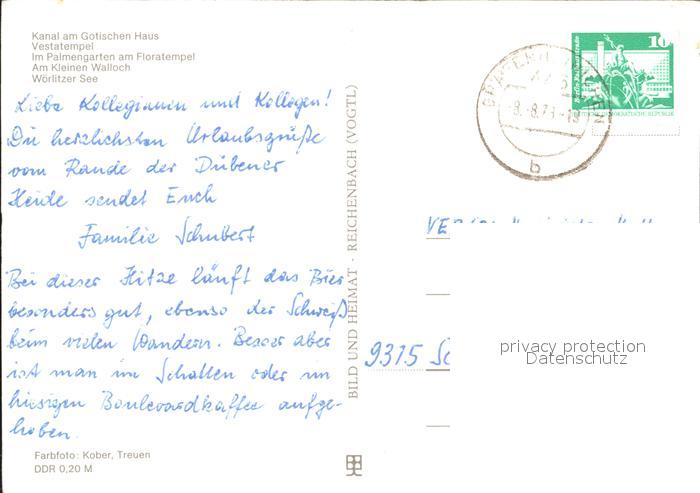 Kanal am Gotischen Haus
Vestatempel
Im Palmengarten am Floratempel
Am Kleinen Walloch
Wörlitzer See
Liebe Kolleginnen und Kollegen!
Die herzlichsten Urlaubsgrüße
vom Rande der Dübener
Heide sendet Euch
Familie Schubert
Bei dieser Hitze läuft das Bier
besonders gut, ebenso der Schweiß
beim vielen Wandern. Besser aber
ist man im Schatten oder im
hiesigen Boulevardkaffee aufge-
hoben.
Farbfoto: Kober, Treuen
DDR 0,20 M
BILD UND HEIMAT · REICHENBACH (VOGTL)
10
DEUTSCHE DEMOKRATISCHE REPUBLIK
b
9315
privacy protection
Datenschutz